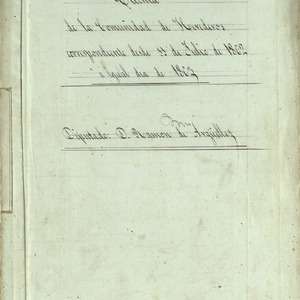 Cuenta
de la Comunidad de Herederos
correspondiente desde 1º de Julio de 1862
a igual dia de 1863
Diputado D. Ramon de Argüelles